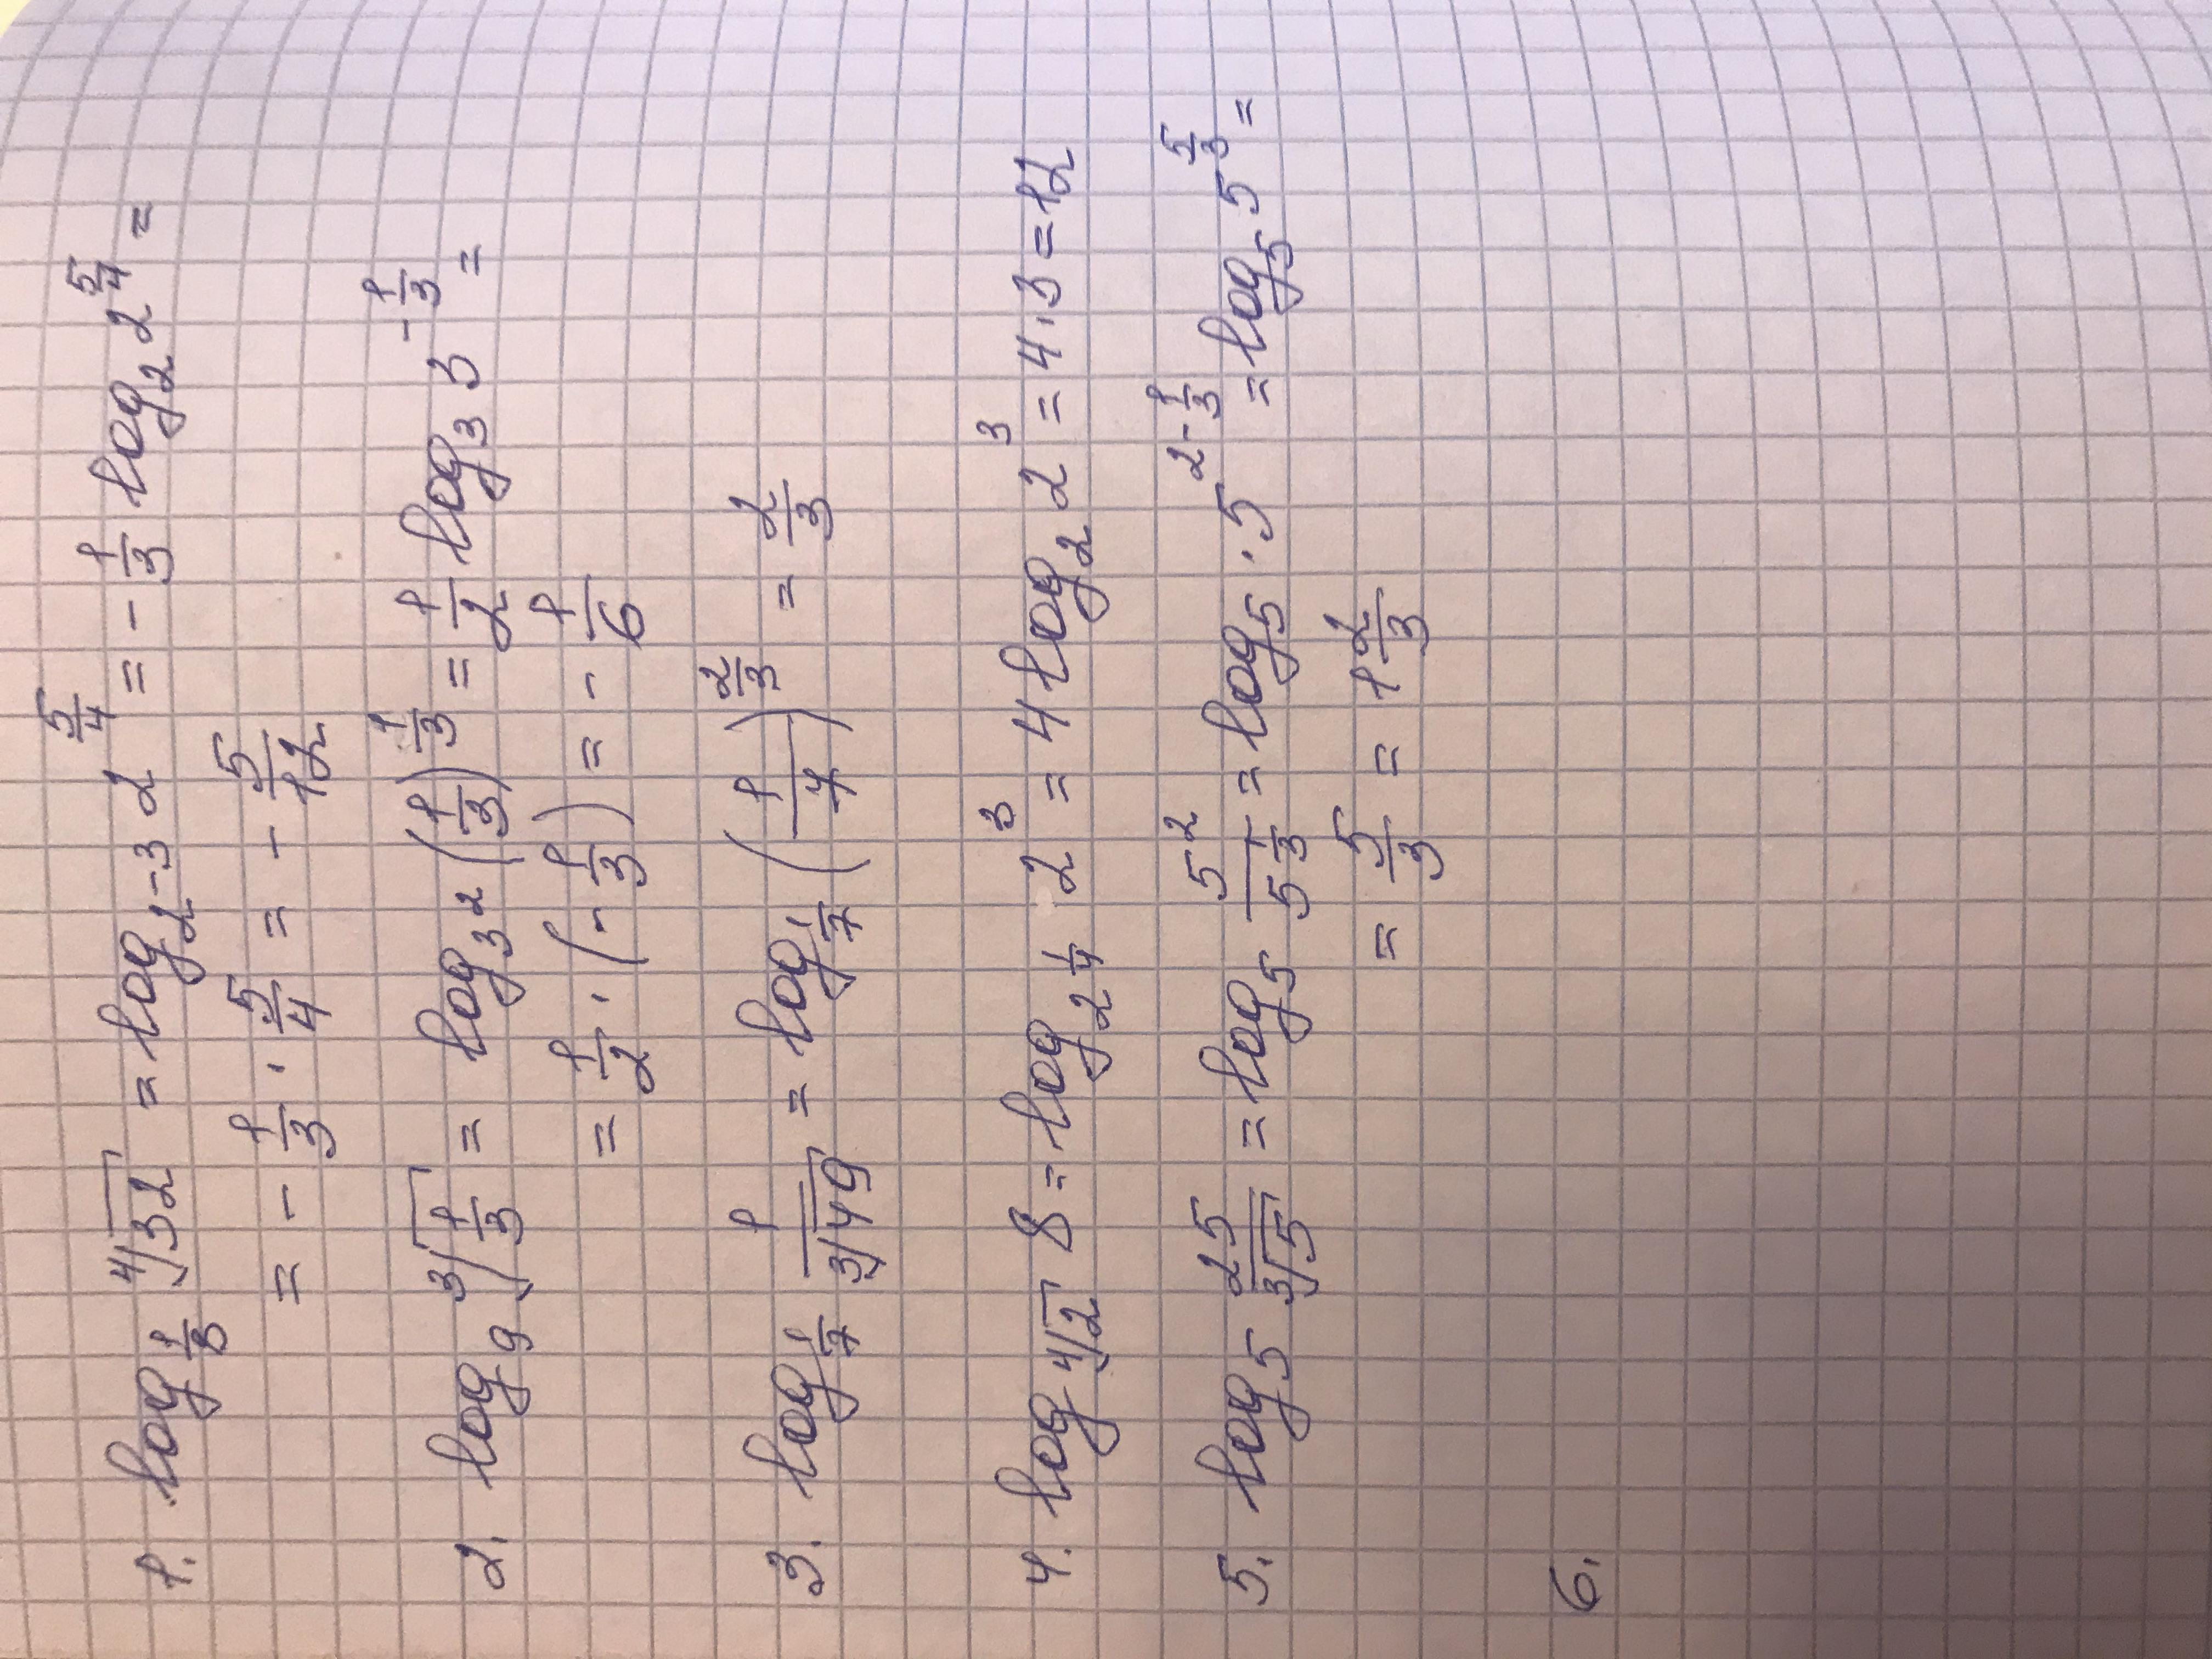 1. log_{1/8} ⁴√32 = log_{2^{-3}} 2^{5/4} = -1/3 log_2 2^{5/4} =
= -1/3 · 5/4 = -5/12
2. log_9 ³√(1/3) = log_{3^2} (1/3)^{1/3} = 1/2 log_3 3^{-1/3} =
= 1/2 · (-1/3) = -1/6
3. log_{1/7} 1/³√49 = log_{1/7} (1/7)^{2/3} = 2/3
4. log_{⁴√2} 8 = log_{2^{1/4}} 2^3 = 4 log_2 2^3 = 4·3 = 12
5. log_5 25/³√5 = log_5 5^2/5^{1/3} = log_5 · 5^{2-1/3} = log_5 5^{5/3} =
= 5/3 = 1 2/3
6.